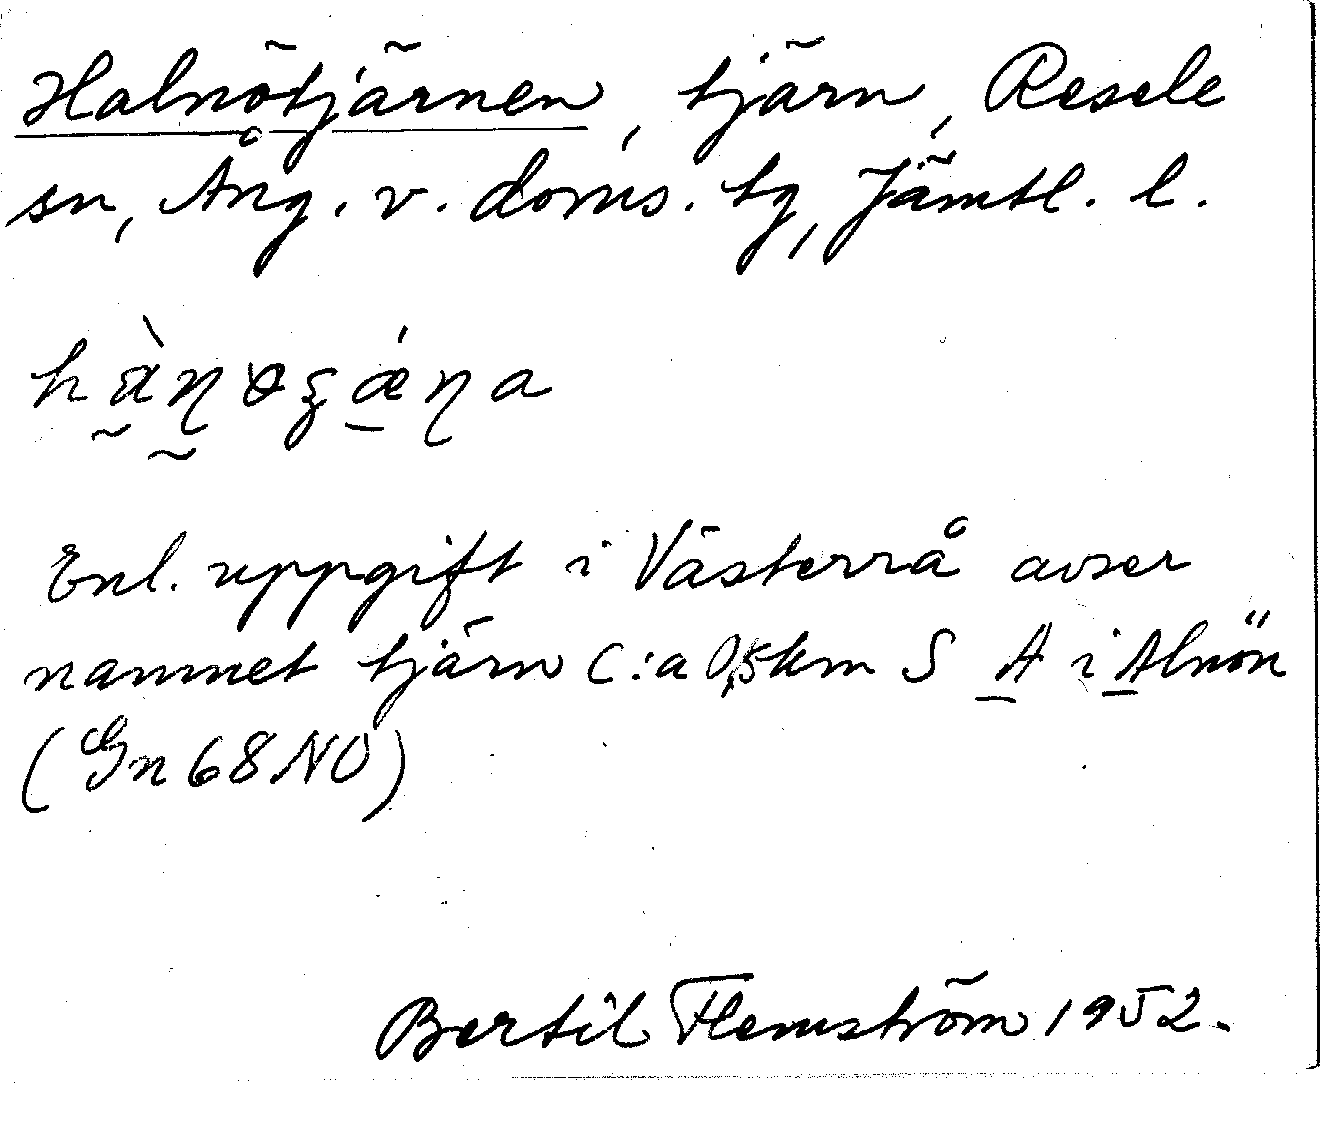 Halnötjärnen, tjärn, Resele
sn, Ång. v. doms. tg, Jämtl. l.
Enl. uppgift i Västerrå avser
namnet tjärn C:a 0,5 km S A i Alnön
(Gn 68 NO)
Bertil Flemström 1952.